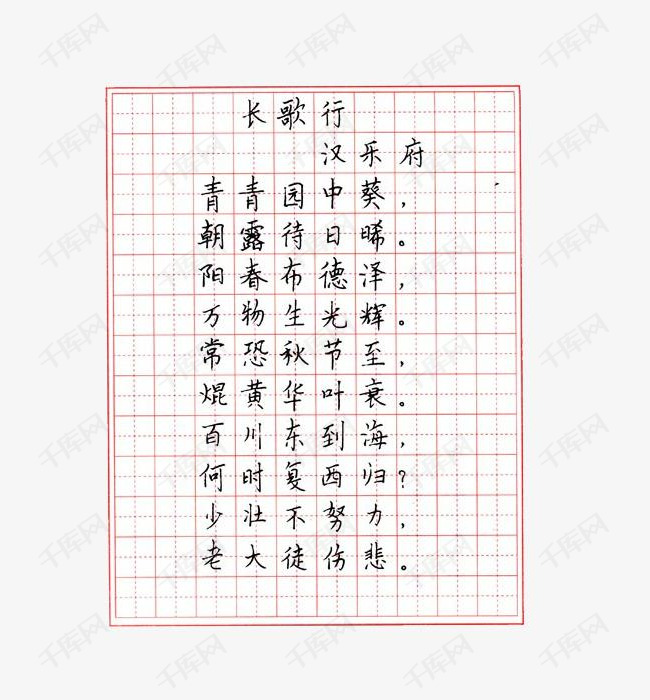 长歌行
汉乐府
青青园中葵，
朝露待日晞。
阳春布德泽，
万物生光辉。
常恐秋节至，
焜黄华叶衰。
百川东到海，
何时复西归？
少壮不努力，
老大徒伤悲。
千库网